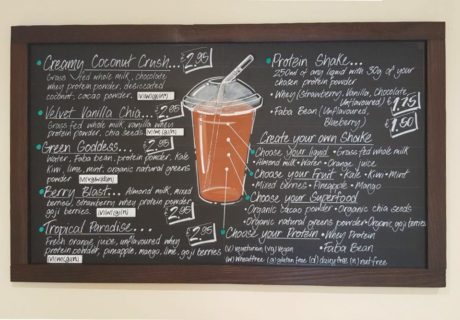 • Creamy Coconut Crush... £2.95
Grass fed whole milk, chocolate
whey protein powder, desiccated
coconut, cacao powder.
• Velvet Vanilla Chia... £2.95
Grass fed whole milk, vanilla whey
protein powder, chia seeds
• Green Goddess... £2.95
Water, Faba bean, protein powder, Kale
Kiwi, lime, mint, organic natural greens
powder
• Berry Blast... Almond milk, mixed
berries, strawberry whey protein powder
goji berries. £2.95
• Tropical Paradise... £2.95
Fresh orange juice, unflavoured whey
protein powder, pineapple, mango, lime, goji berries
• Protein Shake...
250ml of any liquid with 30g of your
chosen protein powder
• Whey (Strawberry, Vanilla, Chocolate
Unflavoured) £1.75
• Faba Bean (Unflavoured,
Blueberry) £1.50
Create your own Shake
Choose your liquid • Grass fed whole milk
• Almond milk • Water • Orange juice
• Choose your Fruit • Kale • Kiwi • Mint
• Mixed berries • Pineapple • Mango
• Choose your Superfood
• Organic cacao powder • Organic chia seeds
• Organic natural greens powder • Organic goji berries
• Choose your Protein • Whey Protein
• Faba Bean
(v) vegetarian (vg) vegan
(w) wheat free (g) gluten free (d) dairy free (n) nut free